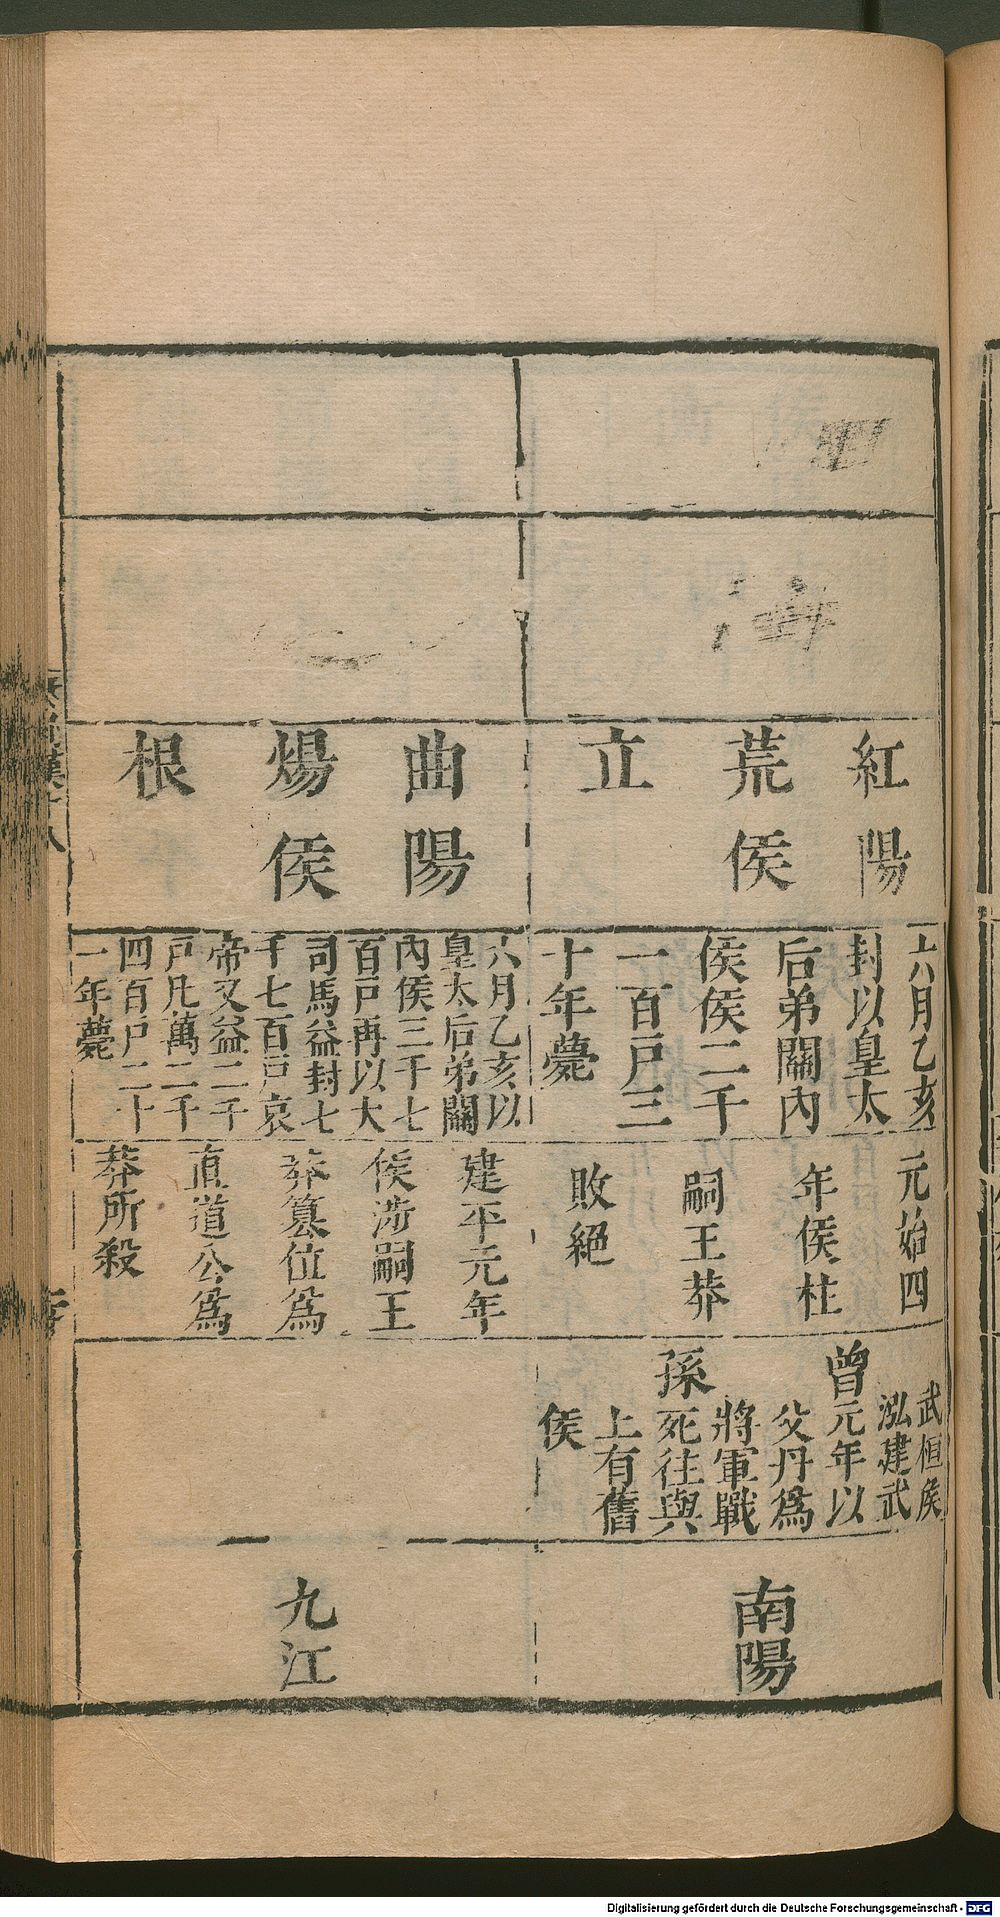 紅陽
荒侯
立
六月乙亥
封以皇太
后弟關內
侯侯二千
一百戸三
十年薨
元始四
年侯柱
嗣王莽
敗絕
曾孫
武桓侯
泓建武
元年以
父丹為
將軍戰
死往與
上有舊
侯
南陽
曲陽
煬侯
根
六月乙亥以
皇太后弟關
內侯三千七
百戸再以大
司馬益封七
千七百戸哀
帝又益二千
戸凡萬二千
四百戸二十
一年薨
建平元年
侯涉嗣王
莽篡位為
直道公為
莽所殺
九江
Digitalisierung gefördert durch die Deutsche Forschungsgemeinschaft - DFG